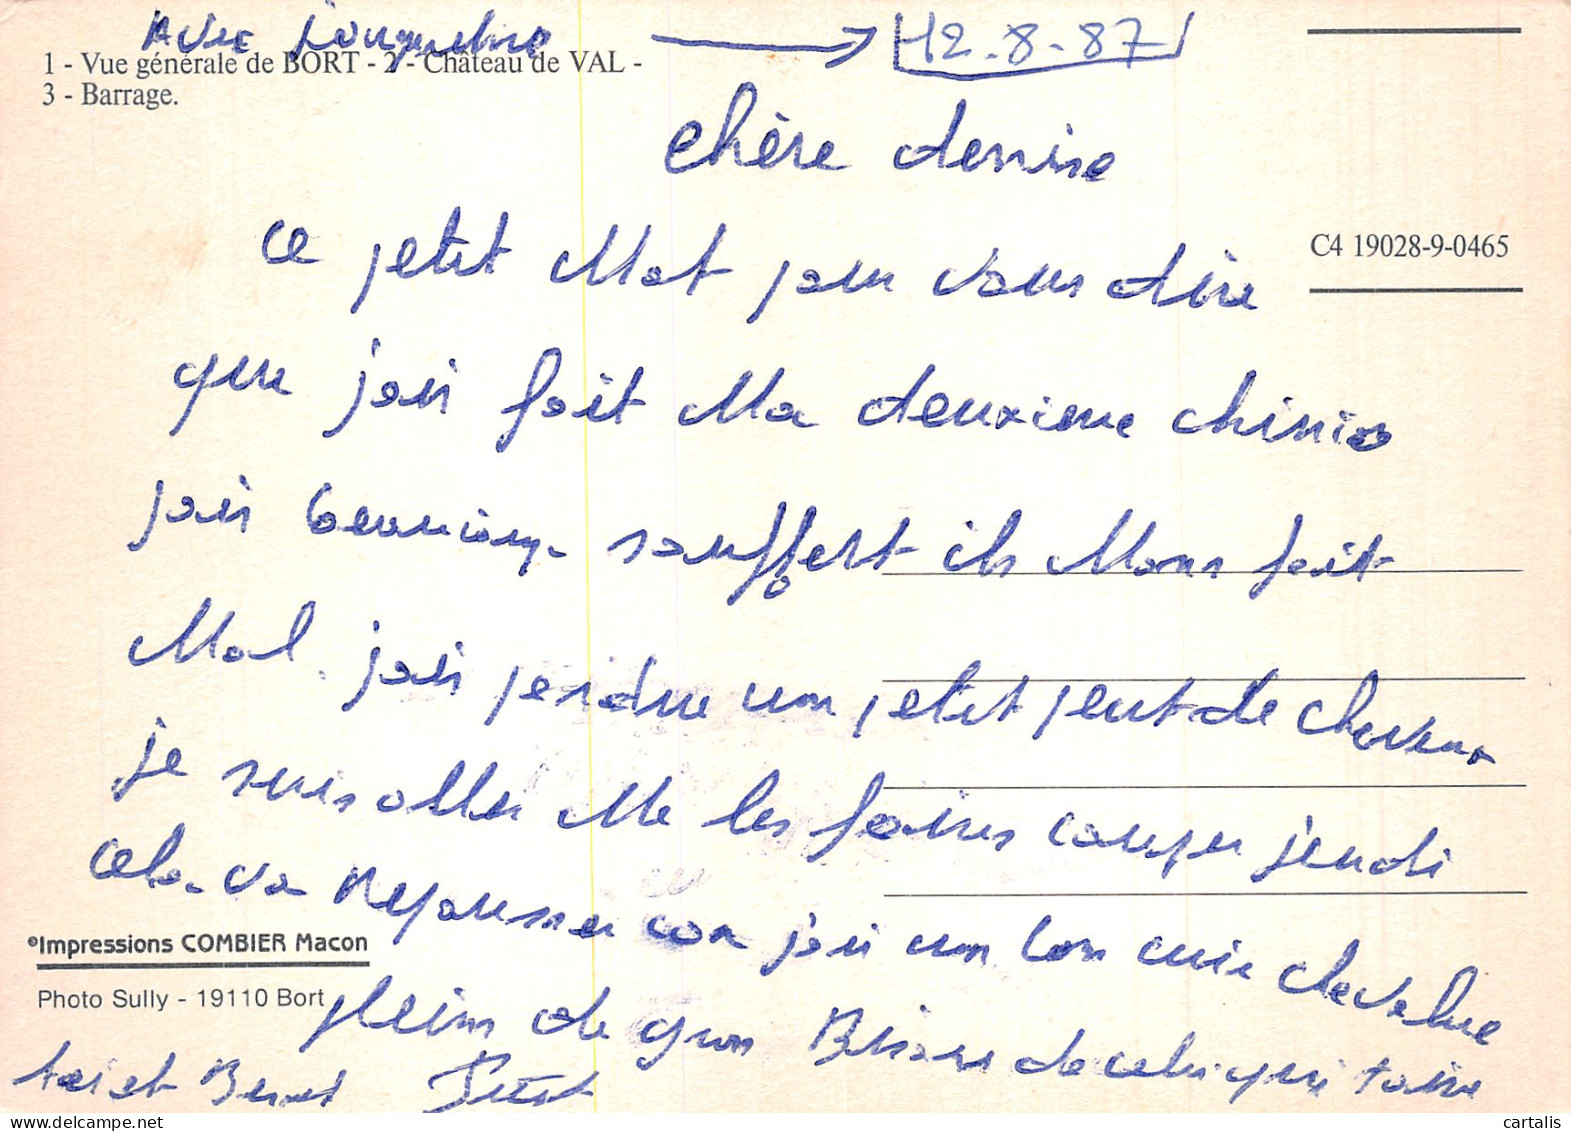 Avec Jacqueline → 12-8-87
1 - Vue générale de BORT - 2 - Château de VAL -
3 - Barrage.
chère dennise
C4 19028-9-0465
ce petit Mot pour vous dire
que jais fait Ma deuxieme chimio
jais beaucoup souffert ils Mons fait
Mal. jais perdue un petit peut de cheveux
je suis aller Me les faires couper jeudi
cela va repousser con jai un bon cuir chevelue
©Impressions COMBIER Macon
Photo Sully - 19110 Bort
plein de gros Bisous de celui qui
cartalis